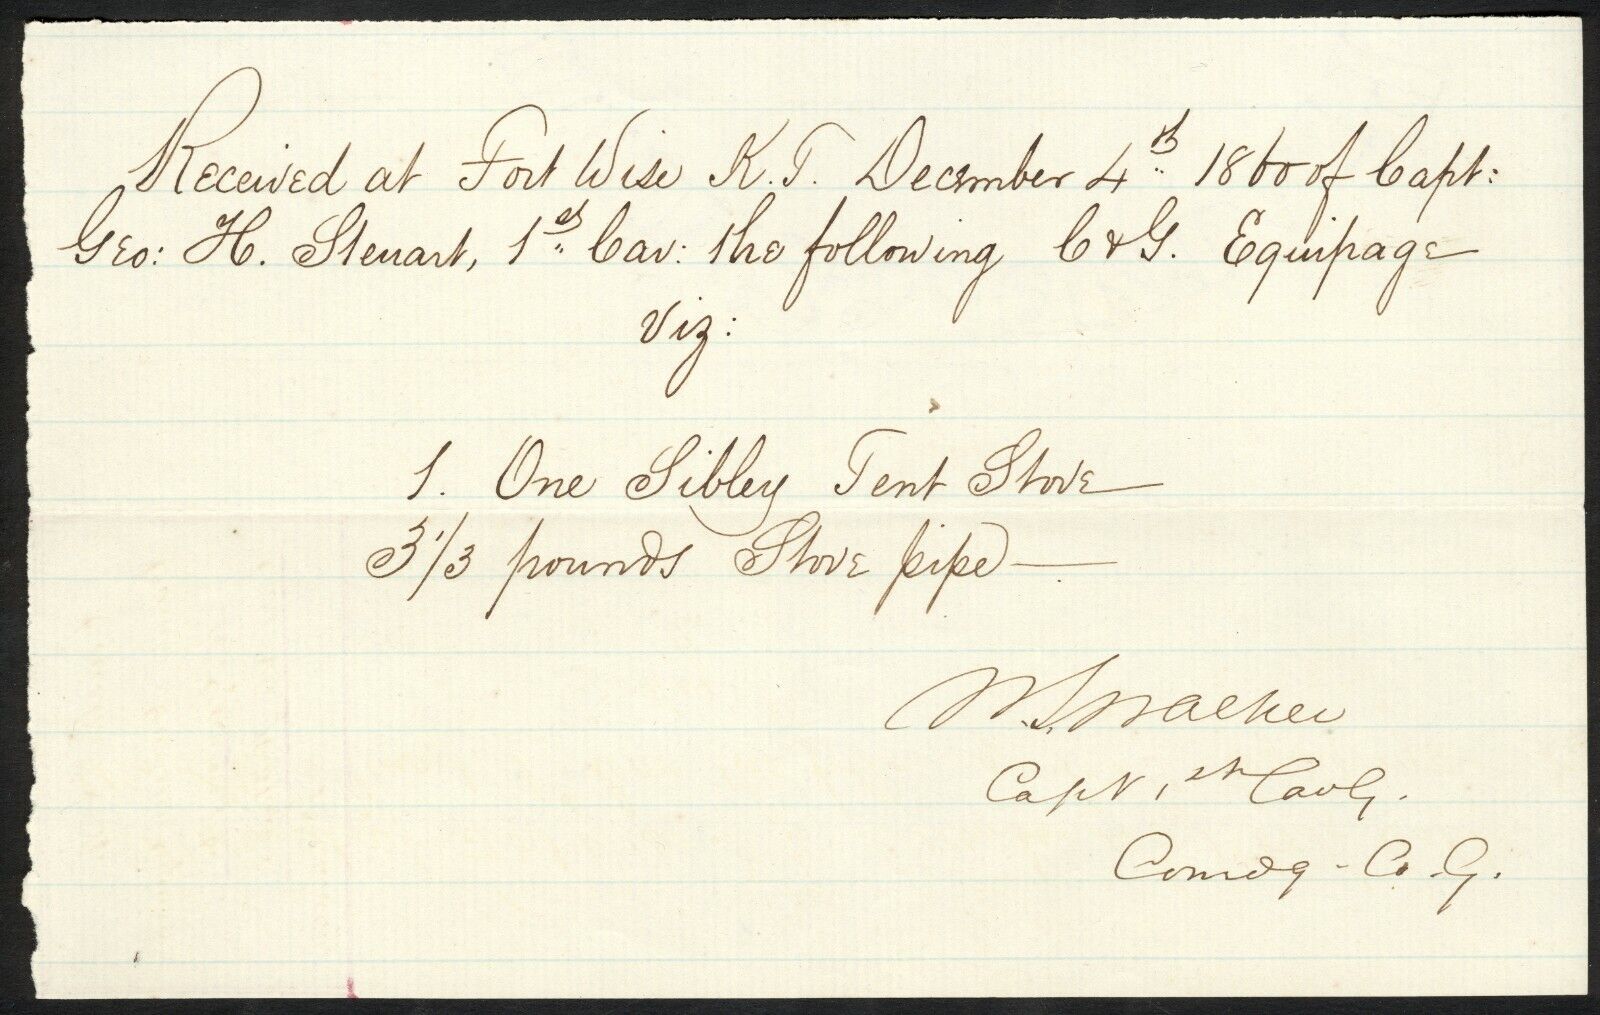 Received at Fort Wise K.T. December 4th 1860 of Capt:
Geo: H. Steuart, 1st Cav: the following C & G. Equipage
Viz:
1. One Sibley Tent Stove
3 1/3 pounds Stove pipe
W. S. Walker
Capt 1st Cavly.
Comdg - Co. G.